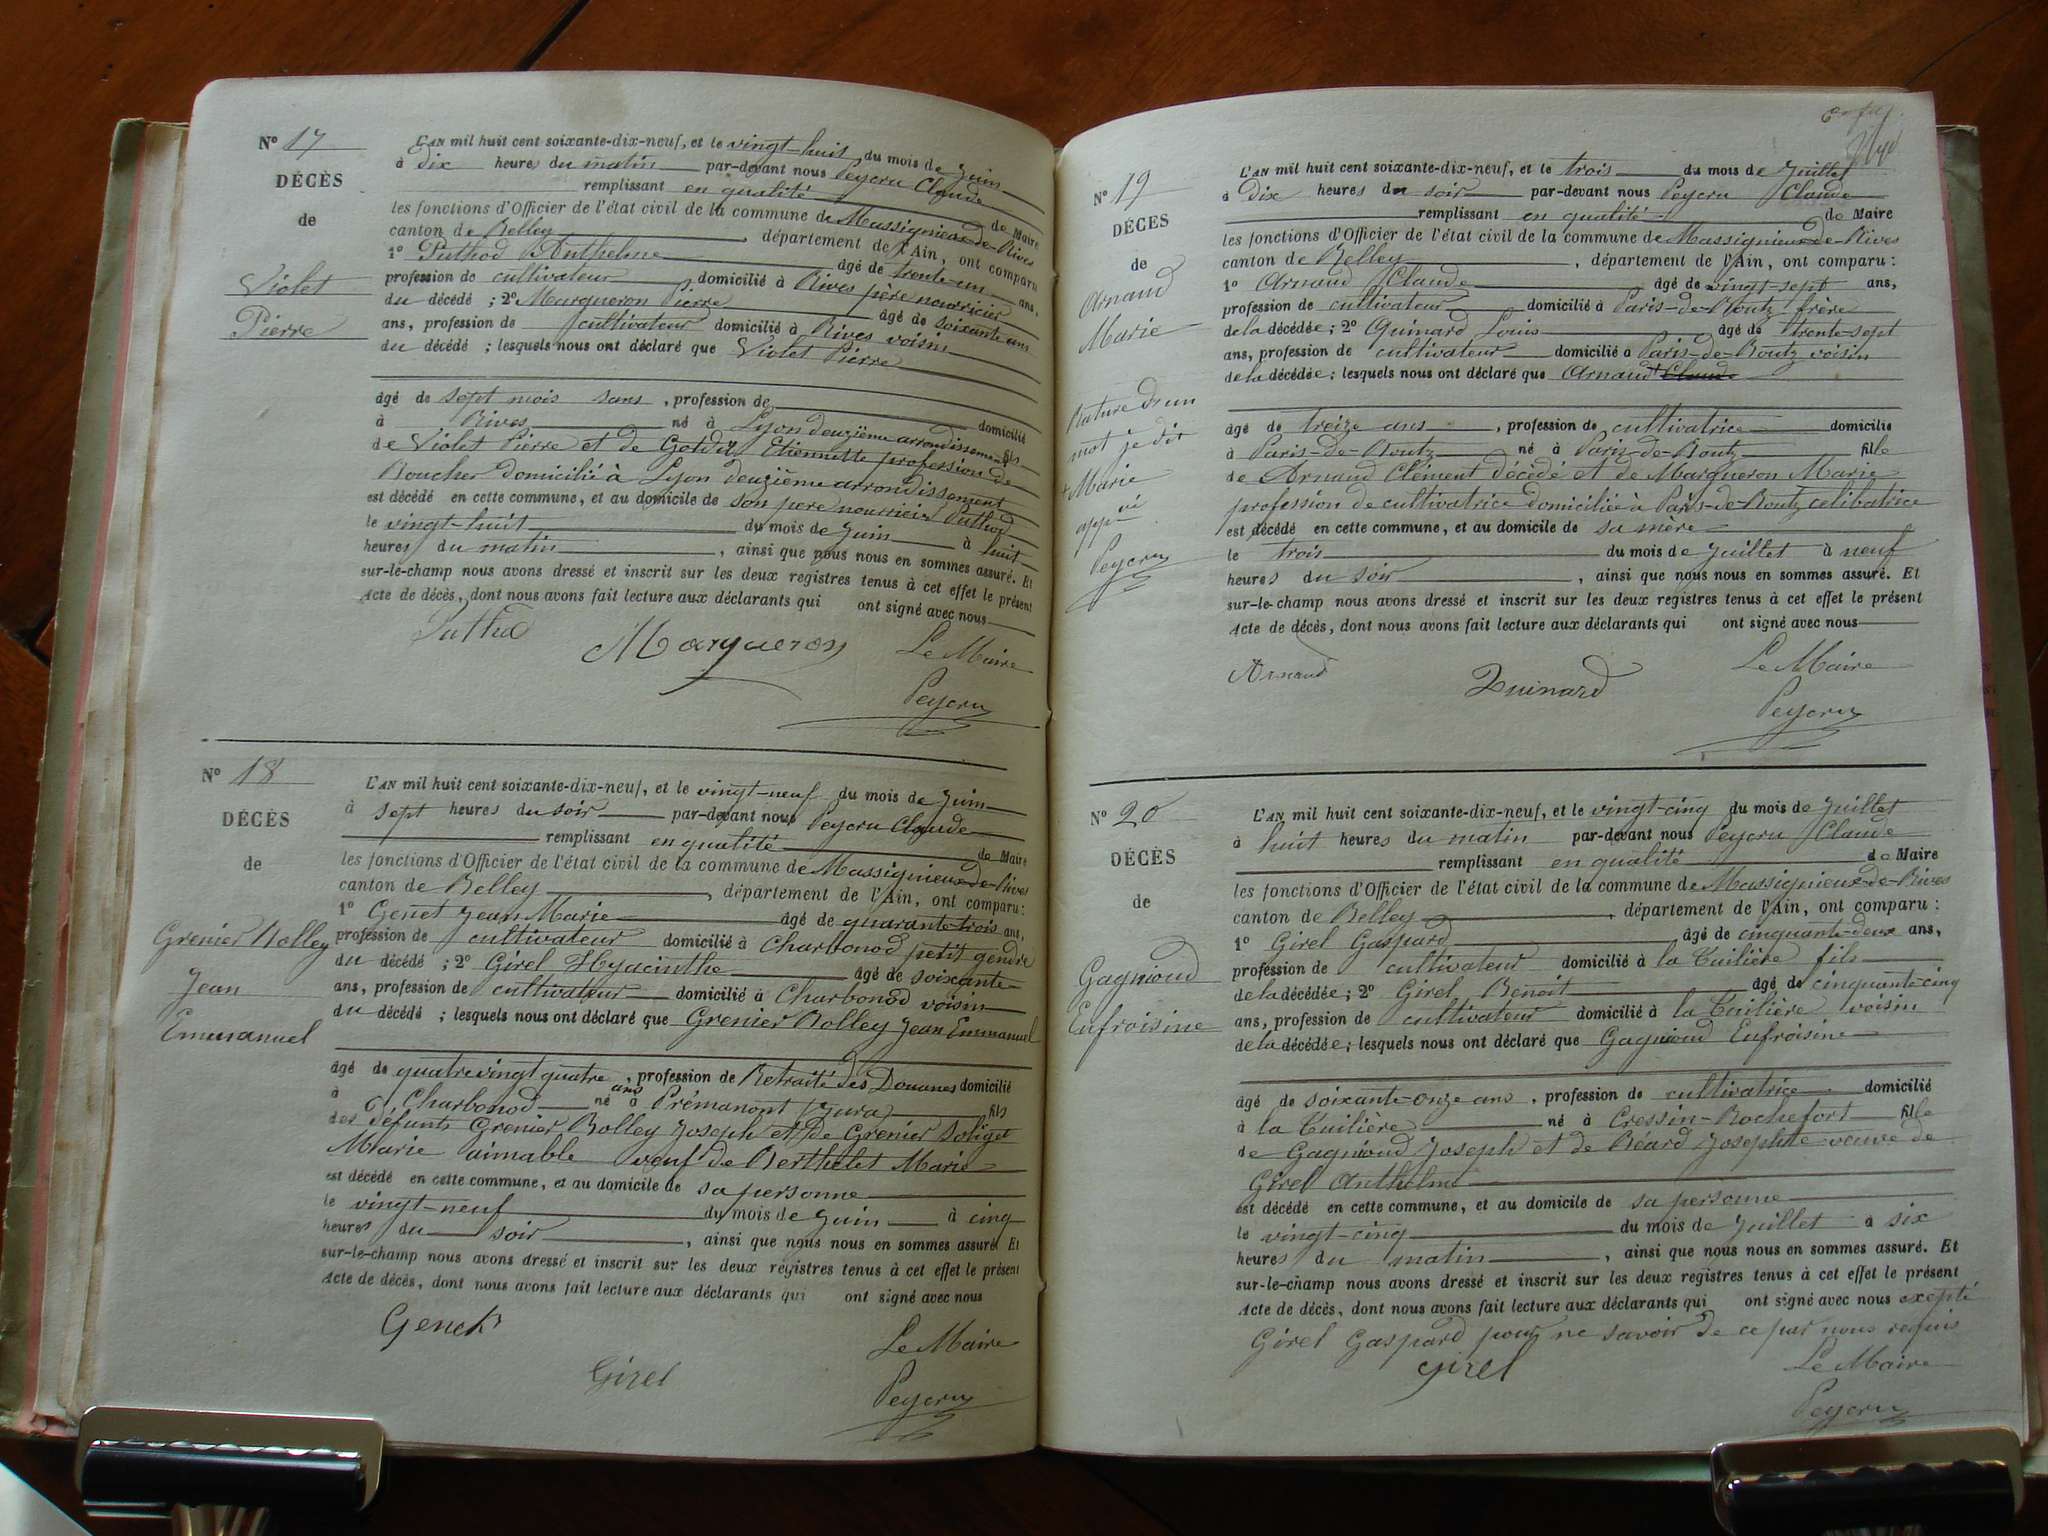 N° 17
DÉCÈS
de
Violet
Pierre
L'AN mil huit cent soixante-dix-neuf, et le vingt-huit du mois de Juin
à dix heures du matin par-devant nous Peycru Claude
remplissant en qualité de Maire
les fonctions d'Officier de l'état civil de la commune de Massignieux-de-Rives
canton de Belley, département de l'Ain, ont comparu
1° Puthod Anthelme âgé de trente un ans,
profession de cultivateur domicilié à Rives père nourricier
du décédé ; 2° Margueron Pierre âgé de soixante ans
ans, profession de cultivateur domicilié à Rives voisin
du décédé ; lesquels nous ont déclaré que Violet Pierre
âgé de sept mois sans, profession de
à Rives né à Lyon deuxième arrondissement domicilié fils
de Violet Pierre et de Etiennette profession de
Boucher domicilié à Lyon deuxième arrondissement
est décédé en cette commune, et au domicile de son père nourricier Puthod
le vingt-huit du mois de Juin à huit
heures du matin, ainsi que nous nous en sommes assuré. Et
sur-le-champ nous avons dressé et inscrit sur les deux registres tenus à cet effet le présent
Acte de décès, dont nous avons fait lecture aux déclarants qui ont signé avec nous
Puthod Margueron Le Maire
Peycru
N° 18
DÉCÈS
de
Grenier Bolley
Jean
Emmanuel
L'AN mil huit cent soixante-dix-neuf, et le vingt-neuf du mois de Juin
à sept heures du soir par-devant nous Peycru Claude
remplissant en qualité de Maire
les fonctions d'Officier de l'état civil de la commune de Massignieux-de-Rives
canton de Belley, département de l'Ain, ont comparu :
1° Genet Jean Marie âgé de quarante-trois ans,
profession de cultivateur domicilié à Charbonod petit gendre
du décédé ; 2° Girel Hyacinthe âgé de soixante
ans, profession de cultivateur domicilié à Charbonod voisin
du décédé ; lesquels nous ont déclaré que Grenier Bolley Jean Emmanuel
âgé de quatre vingt quatre ans, profession de Retraité des Douanes domicilié
à Charbonod né à Prémanont Jura fils
des défunts Grenier Bolley Joseph et de Grenier Soliget
Marie aimable veuf de Berthelet Marie
est décédé en cette commune, et au domicile de sa personne
le vingt-neuf du mois de Juin à cinq
heures du soir, ainsi que nous nous en sommes assuré. Et
sur-le-champ nous avons dressé et inscrit sur les deux registres tenus à cet effet le présent
Acte de décès, dont nous avons fait lecture aux déclarants qui ont signé avec nous
Le Maire
Girel Peycru
N° 19
DÉCÈS
de
Arnaud
Marie
Rature d'un
mot je dis
+ Marie
appvé
Peycru
L'AN mil huit cent soixante-dix-neuf, et le trois du mois de Juillet
à dix heures du soir par-devant nous Peycru Claude
remplissant en qualité de Maire
les fonctions d'Officier de l'état civil de la commune de Massignieux-de-Rives
canton de Belley, département de l'Ain, ont comparu :
1° Arnaud Claude âgé de vingt-sept ans,
profession de cultivateur domicilié à Paris-de-Boutz frère
de la décédée ; 2° Quinard Louis âgé de trente-sept
ans, profession de cultivateur domicilié à Paris-de-Boutz voisin
de la décédée ; lesquels nous ont déclaré que Arnaud + Claude
âgé de treize ans, profession de cultivatrice domicilié
à Paris-de-Boutz né à Paris-de-Boutz fille
de Arnaud Clément décédé et de Margueron Marie
profession de cultivatrice domiciliée à Paris-de-Boutz célibatrice
est décédé en cette commune, et au domicile de sa mère
le trois du mois de Juillet à neuf
heures du soir, ainsi que nous nous en sommes assuré. Et
sur-le-champ nous avons dressé et inscrit sur les deux registres tenus à cet effet le présent
Acte de décès, dont nous avons fait lecture aux déclarants qui ont signé avec nous
Arnaud Quinard Le Maire
Peycru
N° 20
DÉCÈS
de
Gagnioud
Eufroisine
L'AN mil huit cent soixante-dix-neuf, et le vingt-cinq du mois de Juillet
à huit heures du matin par-devant nous Peycru Claude
remplissant en qualité de Maire
les fonctions d'Officier de l'état civil de la commune de Massignieux-de-Rives
canton de Belley, département de l'Ain, ont comparu :
1° Girel Gaspard âgé de cinquante-deux ans,
profession de cultivateur domicilié à la Tuilière fils
de la décédée ; 2° Girel Benoit âgé de cinquante-cinq
ans, profession de cultivateur domicilié à la Tuilière voisin
de la décédée ; lesquels nous ont déclaré que Gagnioud Eufroisine
âgé de soixante-onze ans, profession de cultivatrice domicilié
à la Tuilière né à Cressin-Rochefort fille
de Gagnioud Joseph et de Béard Josephte veuve de
Girel Anthelme
est décédé en cette commune, et au domicile de sa personne
le vingt-cinq du mois de Juillet à six
heures du matin, ainsi que nous nous en sommes assuré. Et
sur-le-champ nous avons dressé et inscrit sur les deux registres tenus à cet effet le présent
Acte de décès, dont nous avons fait lecture aux déclarants qui ont signé avec nous exepté
Girel Gaspard pour ne savoir de ce par nous requis
Girel Le Maire
Peycru